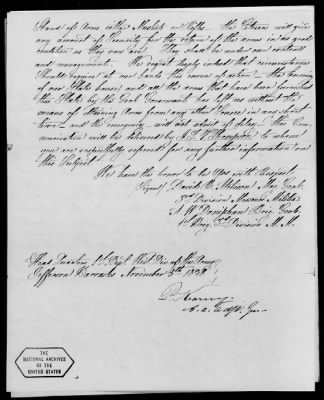 Stand of Arms either Muskets or Rifles. The Citizens will give
any amount of Security for the return of the arms in as good
condition as they now are. They shall be under our control
and management. We regret deeply indeed that circumstances
Should require at our hands this course of action. The burning
of our State house, and all the arms that have been furnished
this State by the Genl Government has left us without the
means of obtaining Arms from any other Source in any short
time and the emergency will not admit of delay. This Com
munication will be delivered by to whom
you are respectfully referred for any further information on
this Subject.
We have the honor to be Yrs with Respect
Signed David R. Atchison Maj. Genl.
3rd Division Missouri Militia
A. W. Doniphan Brig. Genl.
1st Brig. 3rd Division M. M.
Head Quarters 1st Dept West Div of the Army
Jefferson Barracks November 5th 1838
P. Kearny
A. A. Adjt. Gen.
THE
NATIONAL ARCHIVES
OF THE
UNITED STATES